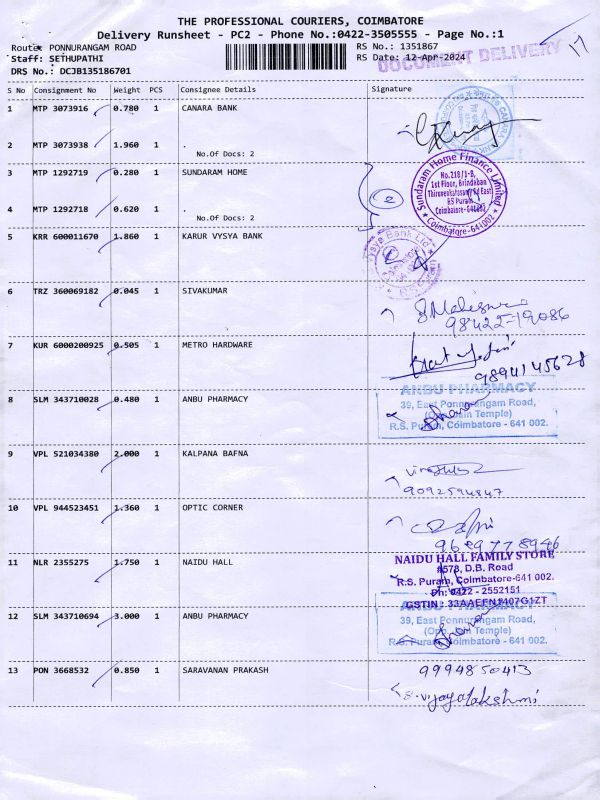 THE PROFESSIONAL COURIERS, COIMBATORE
Delivery Runsheet - PC2 - Phone No.:0422-3505555 - Page No.:1
Route: PONNURANGAM ROAD
RS No.: 1351867
Staff: SETHUPATHI
RS Date: 12-Apr-2024
DRS No.: DCJB135186701
DOCUMENT DELIVERY
17
S No Consignment No Weight PCS Consignee Details Signature
1 MTP 3073916 0.780 1 CANARA BANK
2 MTP 3073938 1.960 1 .
No.Of Docs: 2
3 MTP 1292719 0.280 1 SUNDARAM HOME
Sundaram Home Finance Limited
No.218/1-B,
1st Floor, Brindaban
R5 Puram
Coimbatore-641002
4 MTP 1292718 0.620 1 .
No.Of Docs: 2
2
5 KRR 600011670 1.860 1 KARUR VYSYA BANK
Vysya Bank Ltd
6 TRZ 360069182 0.045 1 SIVAKUMAR
98422-19086
7 KUR 6000200925 0.505 1 METRO HARDWARE
9894145628
8 SLM 343710028 0.480 1 ANBU PHARMACY
ANBU PHARMACY
39, East Ponnurangam Road,
(Opp. Jain Temple)
R.S. Puram, Coimbatore - 641 002.
9 VPL 521034380 2.000 1 KALPANA BAFNA
9092594847
10 VPL 944523451 1.360 1 OPTIC CORNER
9629778946
11 NLR 2355275 1.750 1 NAIDU HALL
NAIDU HALL FAMILY STORE
#578, D.B. Road
R.S. Puram, Coimbatore-641 002.
Ph: 0422 - 2552151
GSTIN : 33AAEFN1407G1ZT
12 SLM 343710694 3.000 1 ANBU PHARMACY
ANBU PHARMACY
39, East Ponnurangam Road,
(Opp. Jain Temple)
R.S. Puram, Coimbatore - 641 002.
13 PON 3668532 0.850 1 SARAVANAN PRAKASH
9994850413
S. Vijayalakshmi